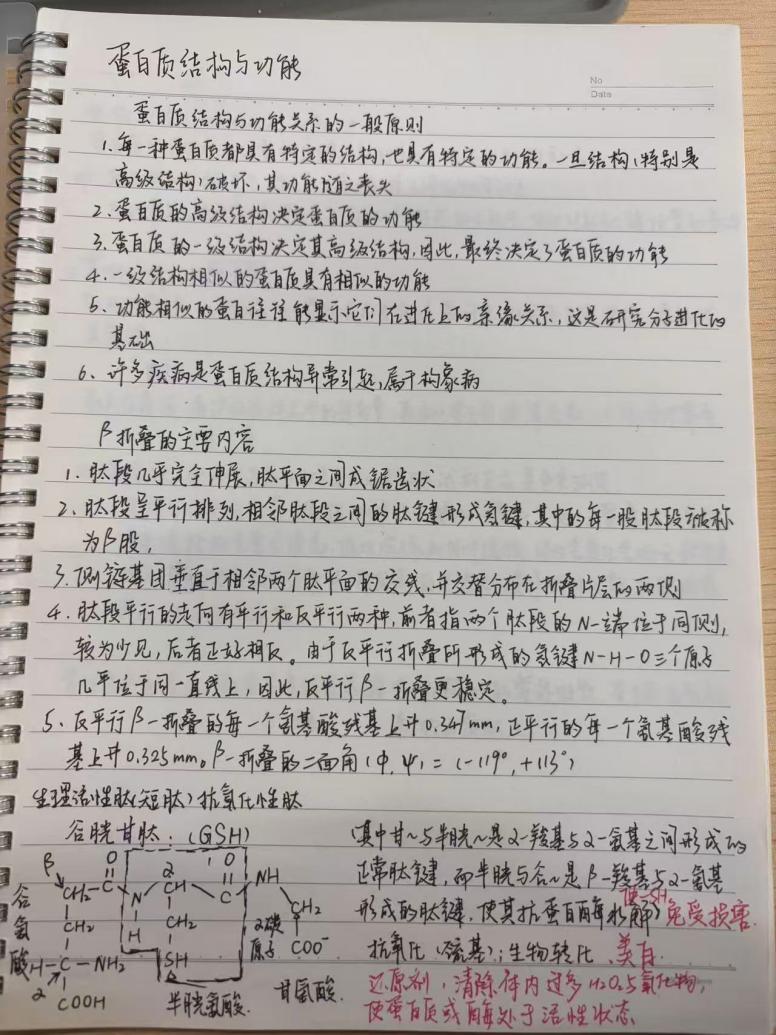 蛋白质结构与功能
No
Date
蛋白质结构与功能关系的一般原则
1.每一种蛋白质都具有特定的结构,也具有特定的功能。一旦结构(特别是
高级结构)破坏,其功能随之丧失
2.蛋白质的高级结构决定蛋白质的功能
3.蛋白质的一级结构决定其高级结构,因此,最终决定了蛋白质的功能
4.一级结构相似的蛋白质具有相似的功能
5、功能相似的蛋白往往能显示它们在进化上的亲缘关系,这是研究分子进化的
基础
6、许多疾病是蛋白质结构异常引起,属于构象病
β折叠的主要内容
1.肽段几乎完全伸展,肽平面之间成锯齿状
2、肽段呈平行排列,相邻肽段之间的肽键形成氢键,其中的每一股肽段被称
为β股,
3、侧链基团垂直于相邻两个肽平面的交线,并交替分布在折叠片层的两侧
4、肽段平行的走向有平行和反平行两种,前者指两个肽段的N-端位于同侧,
较为少见,后者正好相反。由于反平行折叠所形成的氢键N-H-O三个原子
几乎位于同一直线上,因此,反平行β-折叠更稳定。
5、反平行β-折叠的每一个氨基酸残基上升0.347mm,正平行的每一个氨基酸残
基上升0.325mm。β-折叠的二面角(Φ,Ψ)=(-119°,+113°)
生理活性肽(短肽)抗氧化性肽
谷胱甘肽:(GSH)
(其中甘~与半胱~是α-羧基与α-氨基之间形成的
正常肽键,而半胱与谷~是β-羧基与α-氨基
形成的肽键,使其抗蛋白酶水解)
使-SH
免受损害.
抗氧化(巯基);生物转化、美白
还原剂,清除体内过多H2O2与氧化物,
使蛋白质或酶处于活性状态
β
O
α
O
NH
CH2-C
N
CH
C
CH2
谷氨酸
CH2
H
CH2
α碳原子
COO-
H-C-NH2
SH
α
COOH
半胱氨酸.
甘氨酸.